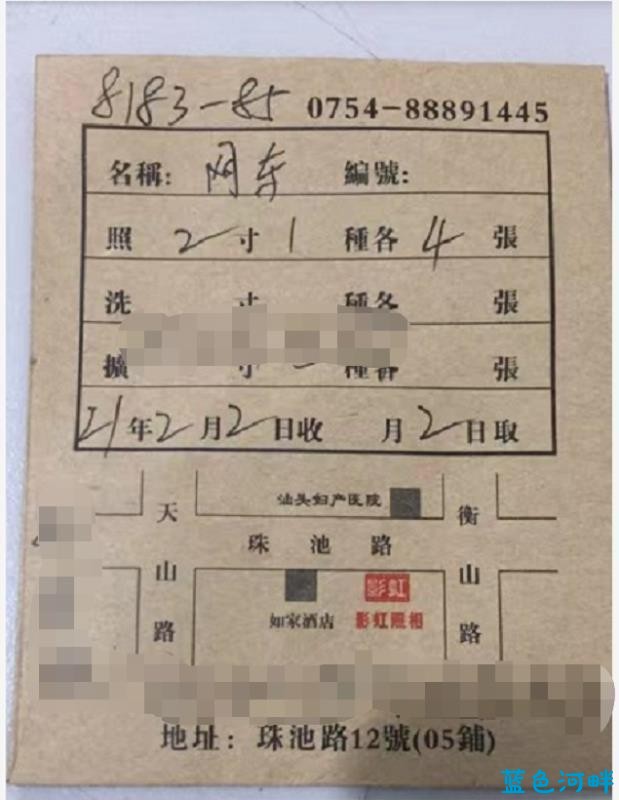 8183-85 0754-88891445
名稱: 阿东 編號:
照 2 寸 1 種各 4 張
洗 寸 種各 張
擴 寸 種各 張
21年2月2日收 月2日取
汕头妇产医院
天山路
珠池路
衡山路
如家酒店
影虹
影虹照相
地址: 珠池路12號(05鋪)
蓝色河畔